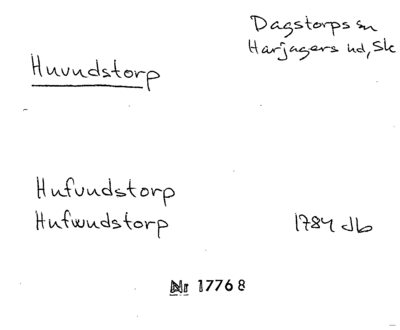 Dagstorps sn
Harjagers hd, Sk
Huvudstorp
Hufvudstorp
Hufwudstorp 1784 db
Nr 17768